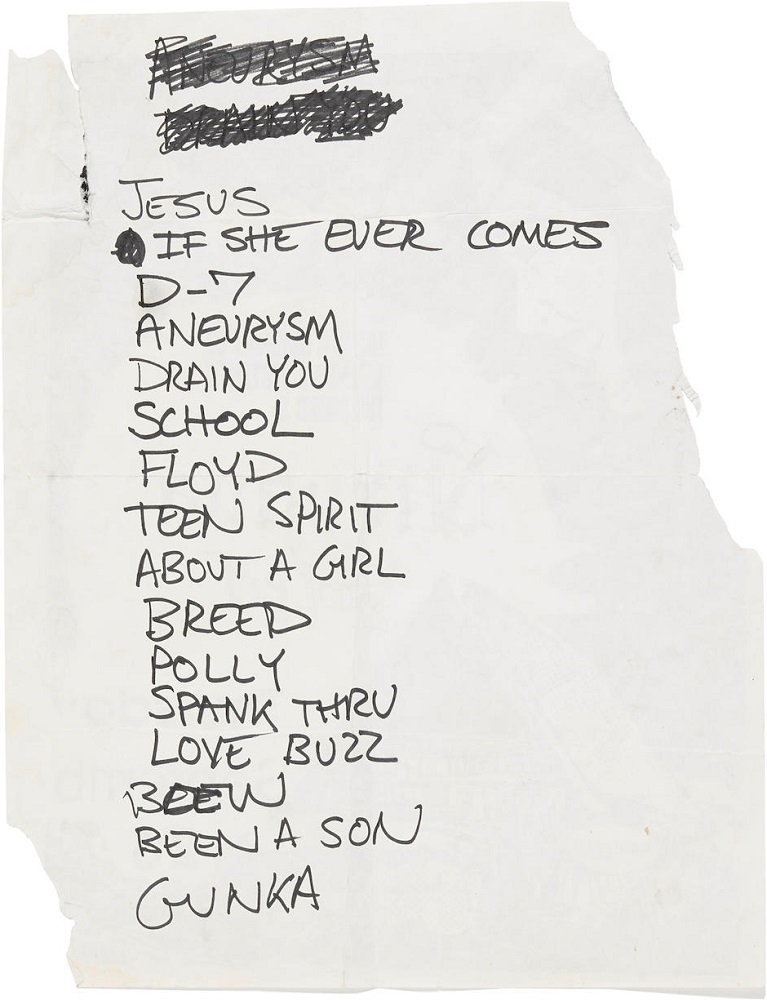 ANEURYSM
DRAIN YOU
JESUS
IF SHE EVER COMES
D-7
ANEURYSM
DRAIN YOU
SCHOOL
FLOYD
TEEN SPIRIT
ABOUT A GIRL
BREED
POLLY
SPANK THRU
LOVE BUZZ
BLEW
BEEN A SON
GUNKA